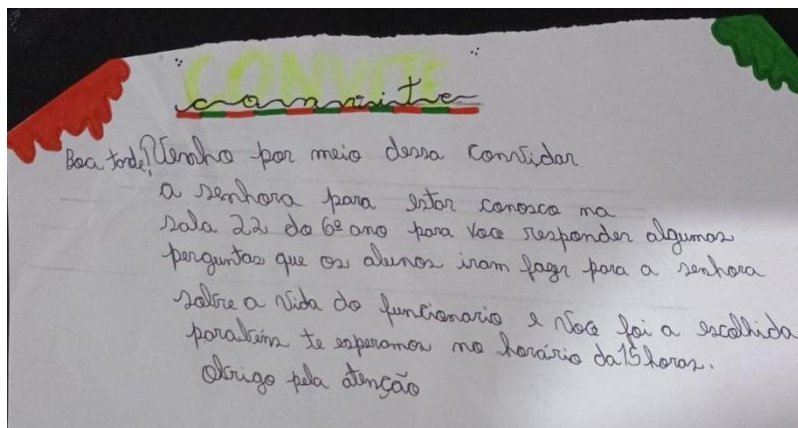 CONVITE
convite
Boa tarde! Venho por meio dessa convidar
a senhora para estar conosco na
sala 22 do 6º ano para voce responder algumas
perguntas que os alunos iram fazer para a senhora
sobre a vida do funcionario e voce foi a escolhida
parabéns te esperamos no horário da 15 horas.
obrigo pela atenção